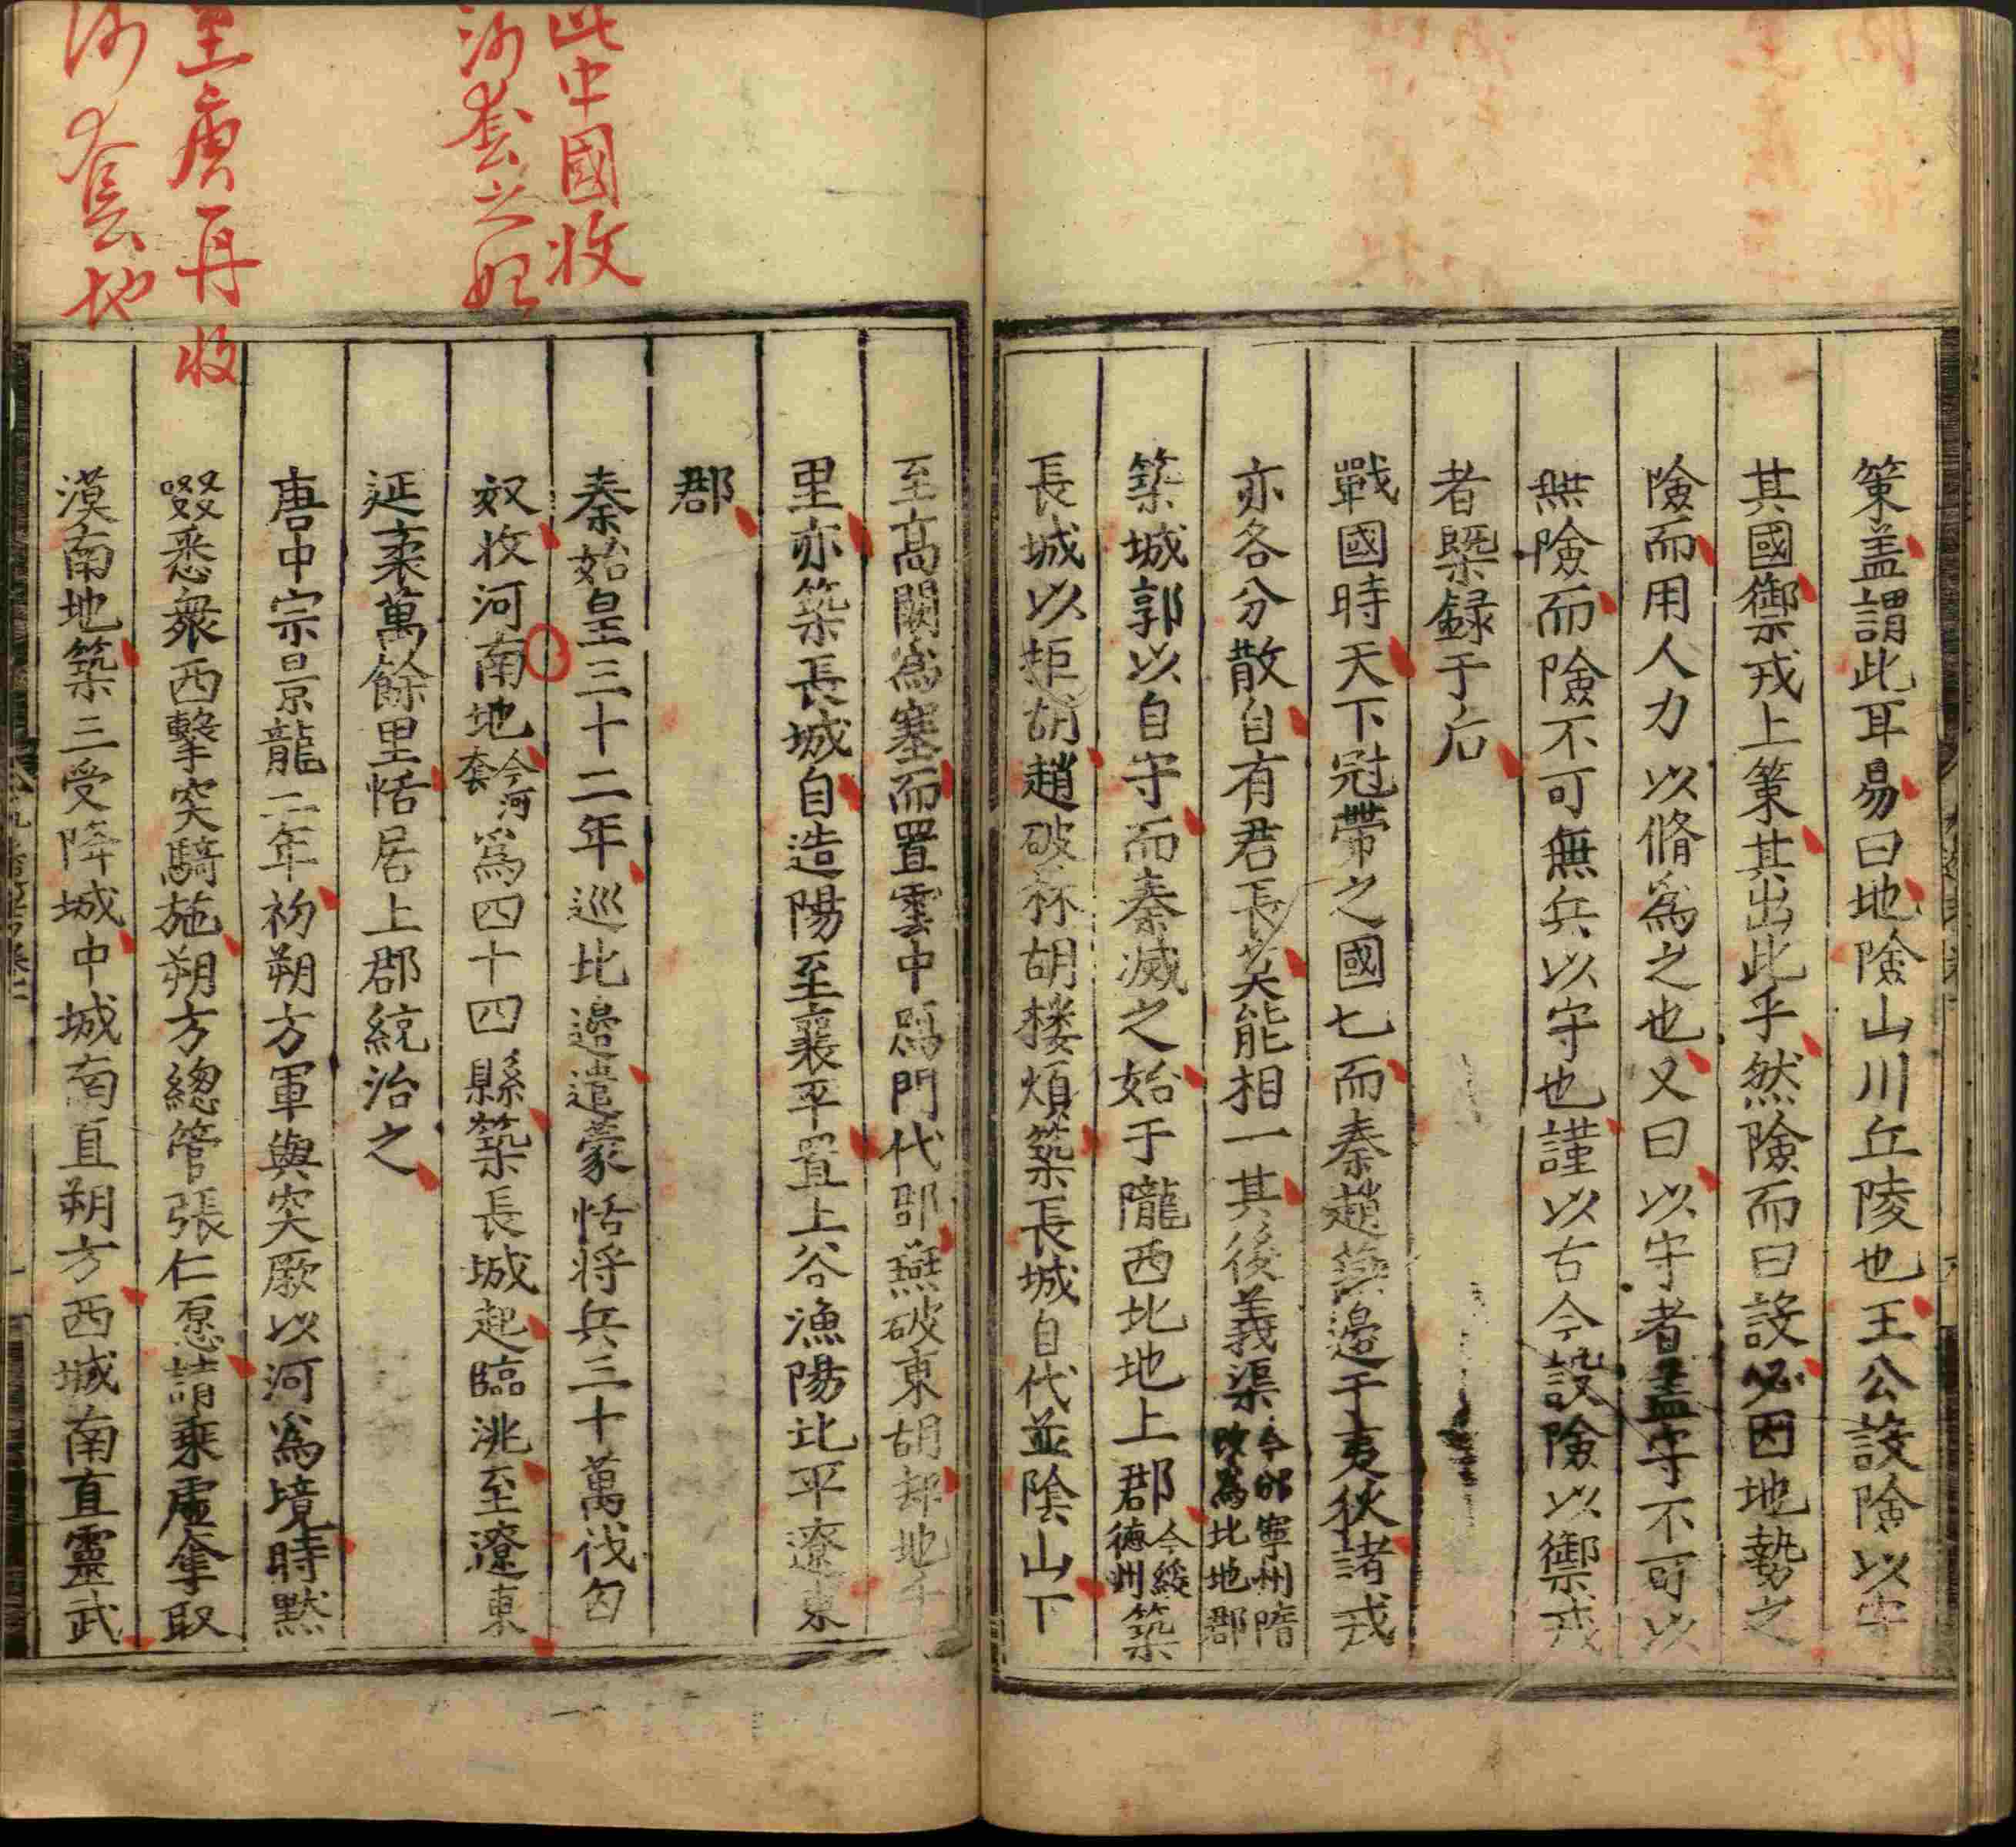 策盖謂此耳易曰地險山川丘陵也王公設險以守
其國禦戎上策其出此乎然險而曰設必因地勢之
險而用人力以脩為之也又曰以守者盖守不可以
無險而險不可無兵以守也謹以古今設險以禦戎
者槩録于后
戰國時天下冠帶之國七而秦趙燕邊于夷狄諸戎
亦各分散自有君長莫能相一其後義渠今邠寧州隋改為北地郡
築城郭以自守而秦滅之始于隴西北地上郡今綏德州築
長城以拒胡趙破林胡樓煩築長城自代並陰山下
至高闕為塞而置雲中鴈門代郡燕破東胡却地千
里亦築長城自造陽至襄平置上谷漁陽北平遼東
郡
秦始皇三十二年巡北邊遣蒙恬将兵三十萬伐匈
奴收河南地今河套為四十四縣築長城起臨洮至遼東
延袤萬餘里恬居上郡統治之
唐中宗景龍二年初朔方軍與突厥以河為境時默
啜悉衆西擊突騎施朔方總管張仁愿請乘虛奪取
漠南地築三受降城中城南直朔方西城南直靈武
此中國收
河套之始
至唐再收
河套地